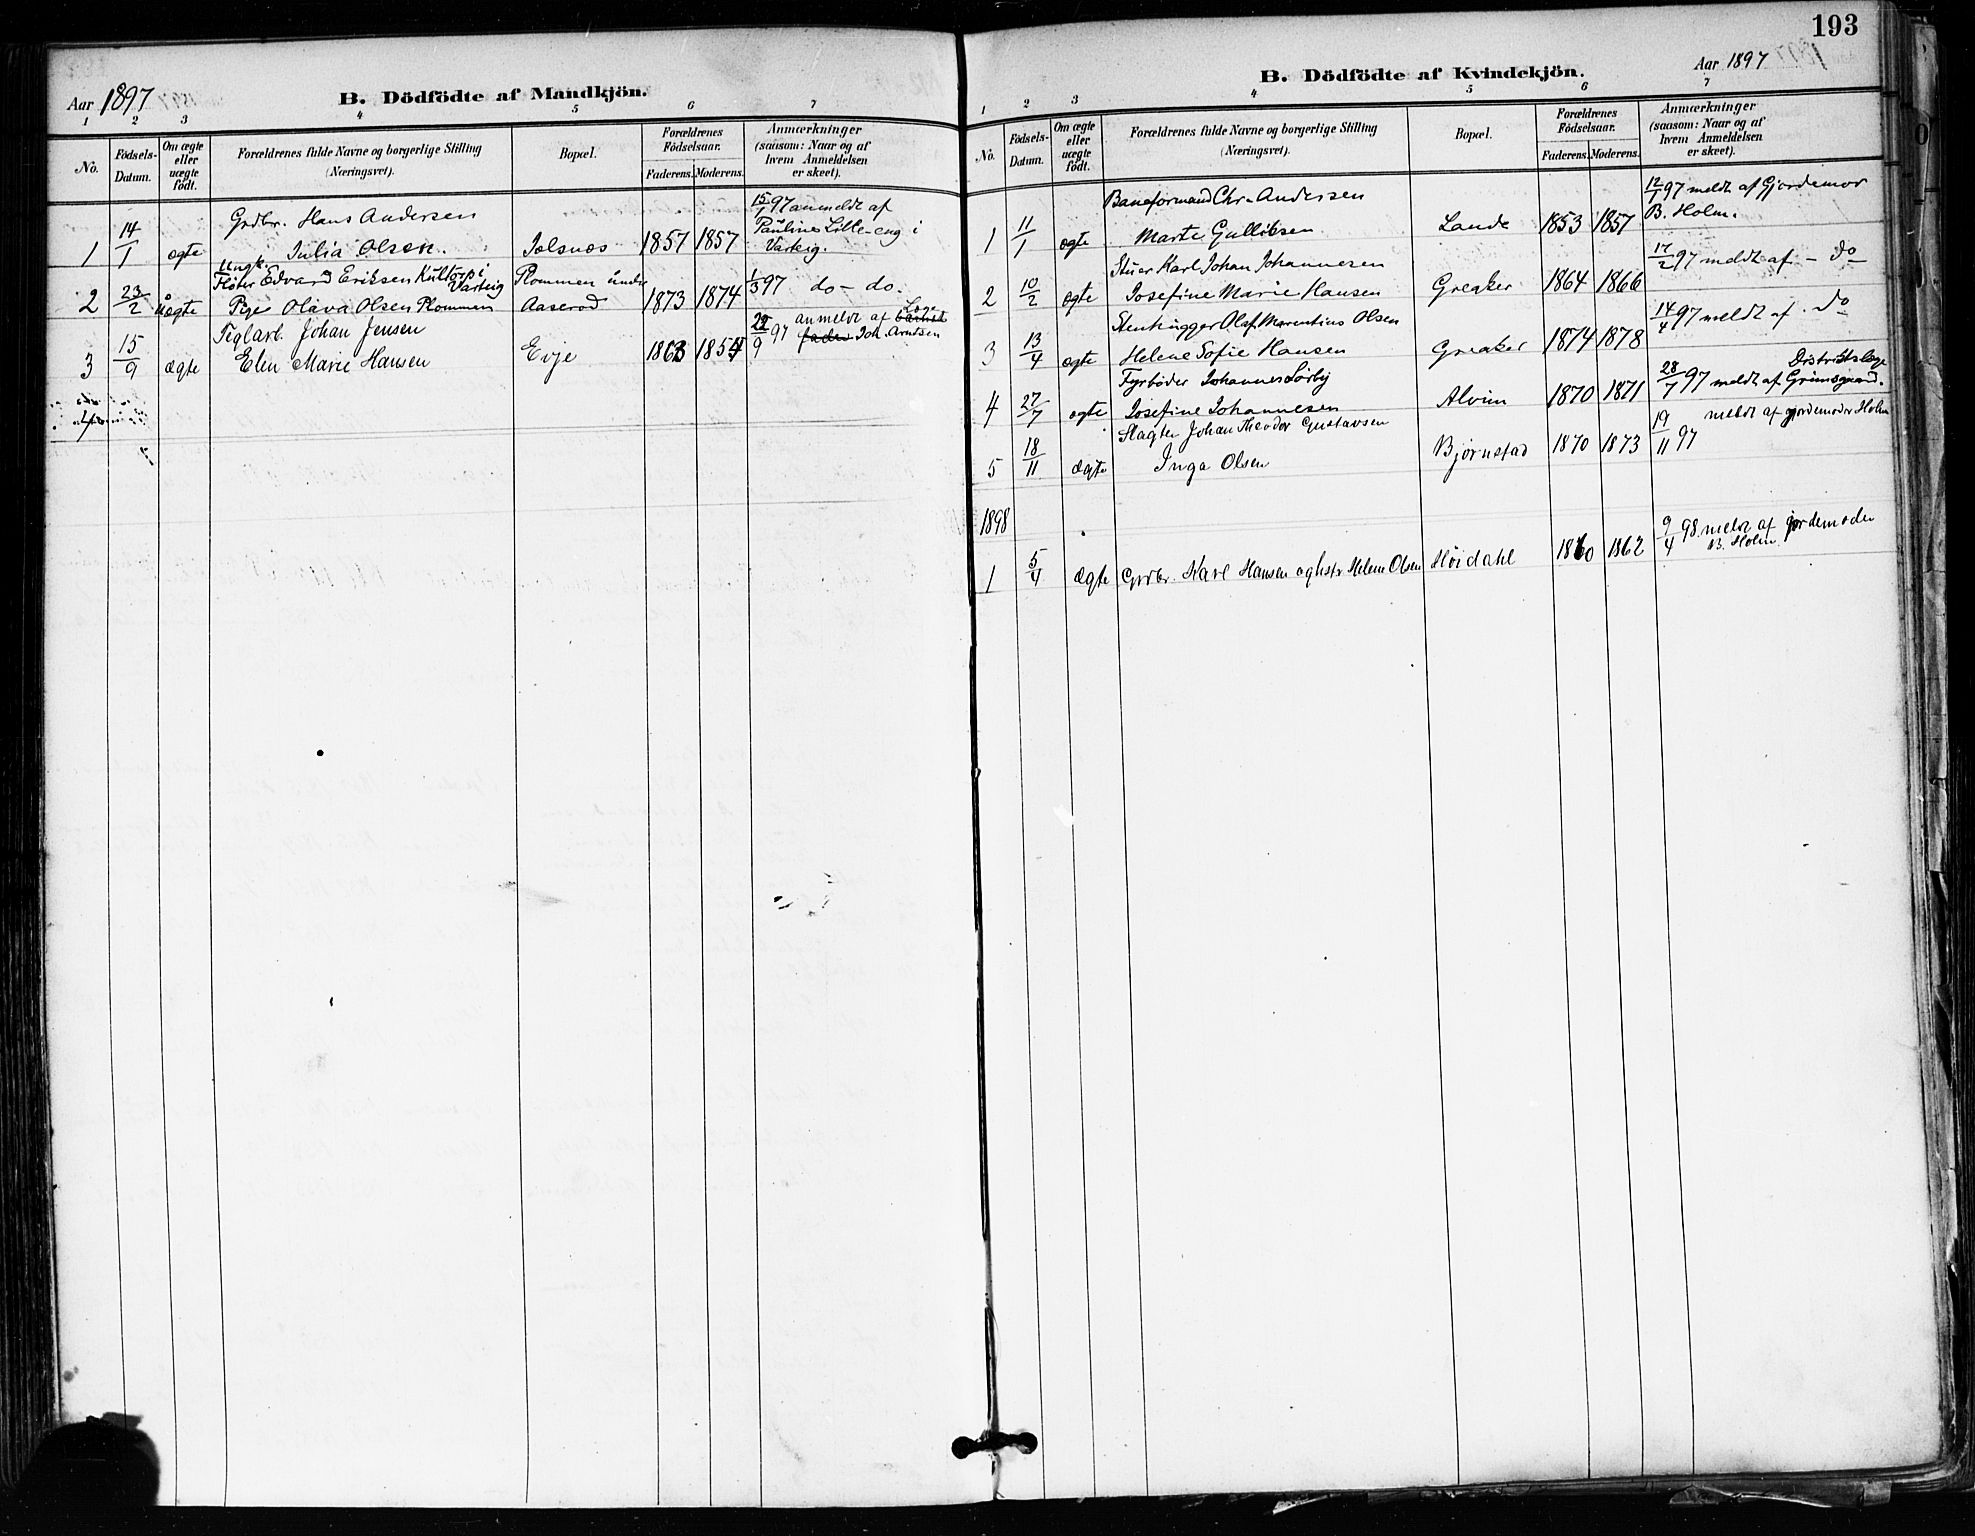 Aar 1897
B. Dödfödte af Mandkjön.
1 2 3 4 5 6 7
No. Födsels-Datum. Om ægte eller uægte födt. Forældrenes fulde Navne og borgerlige Stilling (Næringsvei). Bopæl. Forældrenes Födselsaar. Faderens. Moderens. Anmærkninger (saasom: Naar og af hvem Anmeldelsen er skeet).
Grdbr. Hans Andersen 15/1 97 anmeldt af
1 14/1 ægte Julia Olsen. Jelsnæs 1857 1857 Pauline Lille-eng i Varteig.
Ungk. Fløter Edvard Eriksen Kultorp i Varteig Plommen under
2 23/2 uægte Pige Olava Olsen Plommen Aaserød 1873 1874 1/3 97 do - do.
Teglarb. Johan Jensen 22/9 97 anmeldt af barnets
3 15/9 ægte Elen Marie Hansen Evje 1863 1854 fader Joh. Arntsen
193
Aar 1897
B. Dödfödte af Kvindekjön.
1 2 3 4 5 6 7
No. Födsels-Datum. Om ægte eller uægte födt. Forældrenes fulde Navne og borgerlige Stilling (Næringsvei). Bopæl. Forældrenes Födselsaar. Faderens. Moderens. Anmærkninger (saasom: Naar og af hvem Anmeldelsen er skeet).
Baneformand Chr. Andersen 12/1 97 meldt af Gjordemor
1 11/1 ægte Marte Gulliksen Lande 1853 1857 B. Holm.
Stuer Karl Johan Johannesen
2 10/2 ægte Josefine Marie Hansen Greaker 1864 1866 12/2 97 meldt af - do
Stenhugger Olaf Marentius Olsen
3 13/4 ægte Helene Sofie Hansen Greaker 1874 1878 14/4 97 meldt af. do
Fyrbøder Johannes Sørby Distriktslæge
4 27/7 ægte Josefine Johannesen Alvim 1870 1871 28/7 97 meldt af Grimsgaard.
Slagter Johan Theodor Gustavsen meldt af gjordemoder Holm
5 18/11 ægte Inga Olsen Bjørnstad 1870 1873 19/11 97
1898
9/4 98 meldt af jordemoder
1 5/4 Ægte Grdbr. Karl Hansen og hstr Helene Olsen Høidahl 1860 1862 B. Holm.